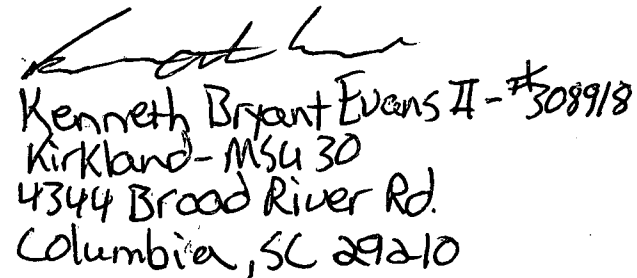 Kenneth Bryant Evans II - #308918
Kirkland - MSU 30
4344 Broad River Rd.
Columbia, SC 29210